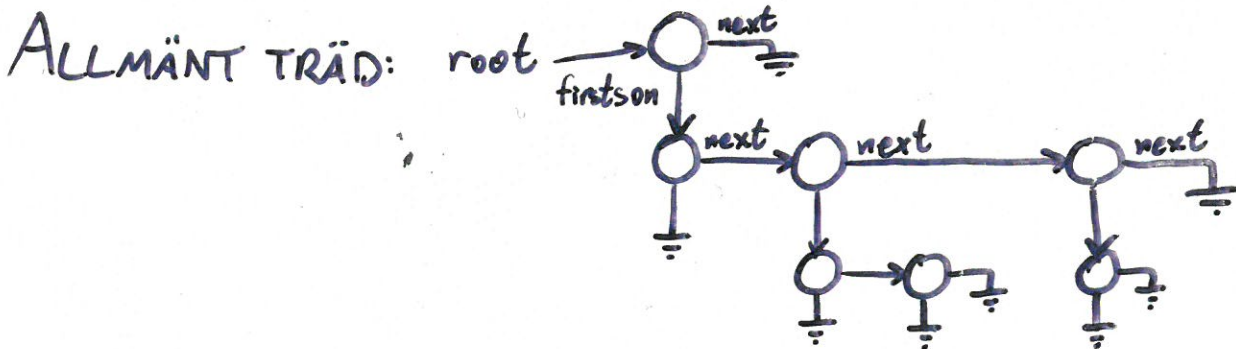 ALLMÄNT TRÄD: root next
firstson
next next next